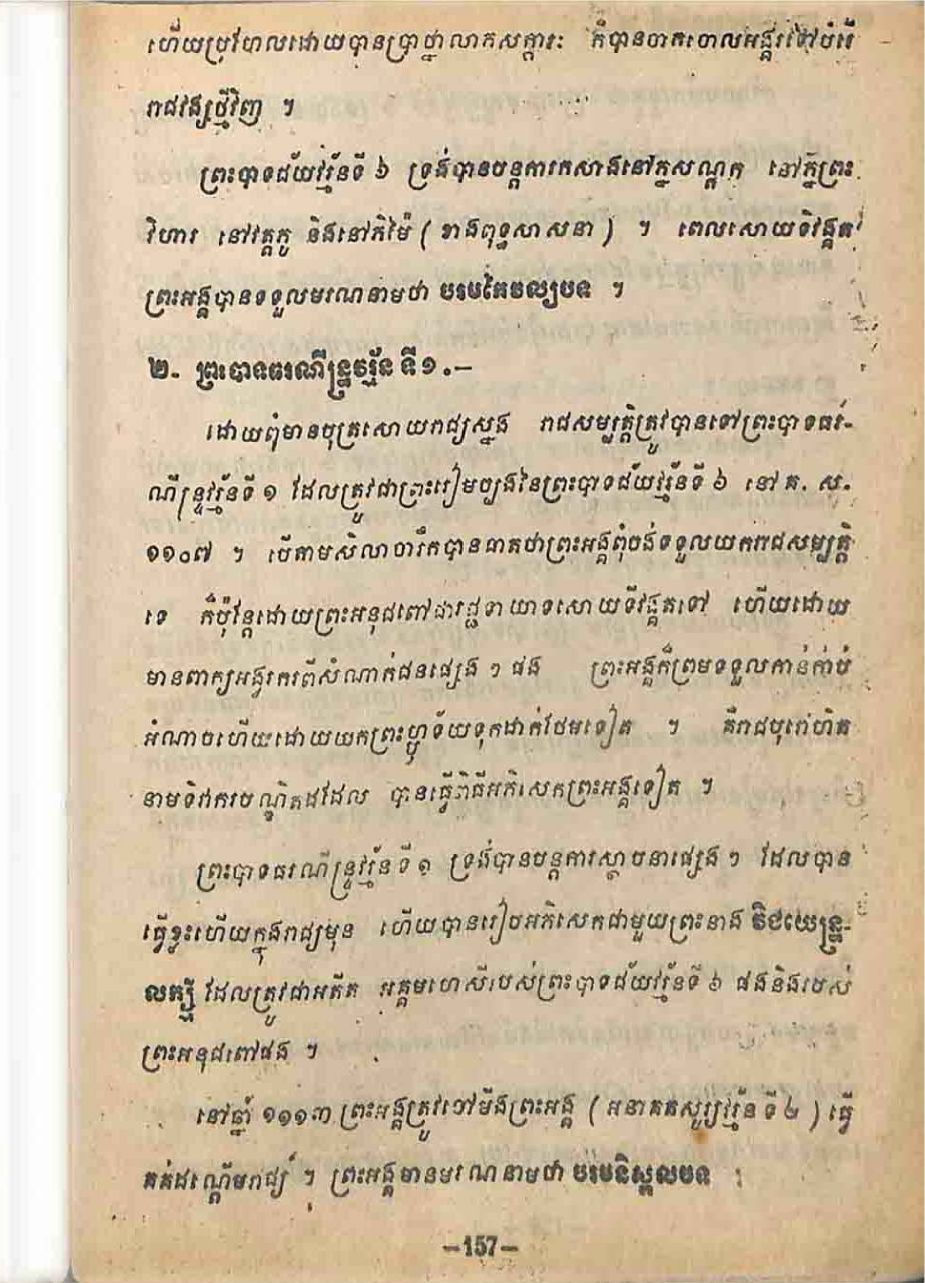 ហើយប្រហែលដោយបានប្រាថ្នាលាភសក្ការៈ ក៏បានចាកចោលអង្គរទៅបំរើ
រាជវង្សថ្មីវិញ ។
ព្រះបាទជ័យវរ្ម័នទី ៦ ទ្រង់បានបន្តការកសាងនៅភ្នំសណ្តក នៅភ្នំព្រះ
វិហារ នៅវត្តភូ និងនៅភិម៉ៃ ( ខាងពុទ្ធសាសនា ) ។ ពេលសោយទិវង្គត
ព្រះអង្គបានទទួលមរណនាមថា បរមកៃវល្យបទ ។
២- ព្រះបាទធរណីន្ទ្រវរ្ម័ន ទី១.–
ដោយពុំមានបុត្រសោយរាជ្យស្នង រាជសម្បត្តិត្រូវបានទៅព្រះបាទធរ-
ណីន្ទ្រវរ្ម័នទី ១ ដែលត្រូវជាព្រះរៀមច្បងនៃព្រះបាទជ័យវរ្ម័នទី ៦ នៅ គ. ស.
១១០៧ ។ បើតាមសិលាចារឹកបានធាតថាព្រះអង្គពុំចង់ទទួលយករាជសម្បត្តិ
ទេ ក៏ប៉ុន្តែដោយព្រះអនុជពៅជារជ្ជទាយាទសោយទីវង្គតទៅ ហើយដោយ
មានពាក្យអង្វរករពីសំណាក់ជនផ្សេង ៗ ផង ព្រះអង្គក៏ព្រមទទួលកាន់កាប់
អំណាចហើយដោយយកព្រះហ្ឫទ័យទុកដាក់ថែមទៀត ។ គឺរាជបុរោហិត
នាមទិវាករបណ្ឌិតដដែល បានធ្វើពិធីអភិសេកព្រះអង្គទៀត ។
ព្រះបាទធរណីន្ទ្រវរ្ម័នទី ១ ទ្រង់បានបន្តការស្ថាបនាផ្សេង ៗ ដែលបាន
ធ្វើខ្លះហើយក្នុងរាជ្យមុន ហើយបានរៀបអភិសេកជាមួយព្រះនាង វិជយេន្ទ្រ-
លក្ស្មី ដែលត្រូវជាអតីត អគ្គមហេសីរបស់ព្រះបាទជ័យវរ្ម័នទី ៦ ផងនិងរបស់
ព្រះអនុជពៅផង ។
នៅឆ្នាំ ១១១៣ ព្រះអង្គត្រូវចៅមីងព្រះអង្គ ( អនាគតសូរ្យវរ្ម័នទី ២ ) ធ្វើ
គត់ដណ្តើមរាជ្យ ។ ព្រះអង្គមានមរណនាមថា បរមនិស្គលបទ
–157–